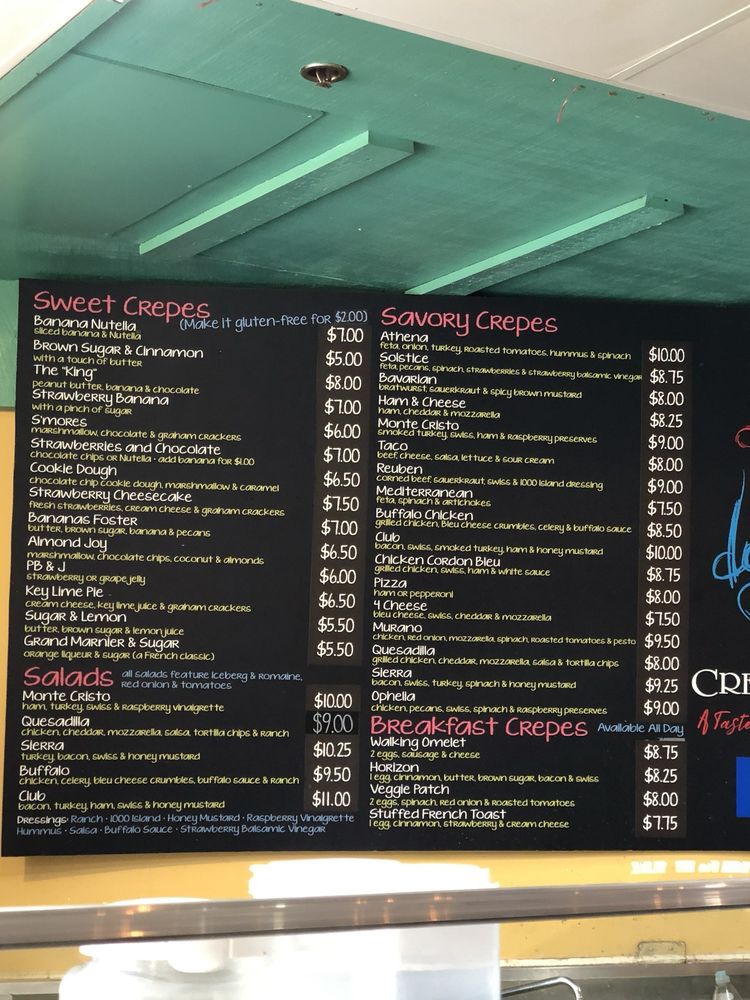 Sweet Crepes
(Make it gluten-free for $2.00)
Banana Nutella $7.00
sliced banana & Nutella
Brown Sugar & Cinnamon $5.00
with a touch of butter
The "King" $8.00
peanut butter, banana & chocolate
Strawberry Banana $7.00
with a pinch of sugar
S'mores $6.00
marshmallow, chocolate & graham crackers
Strawberries and Chocolate $7.00
chocolate chips or Nutella · add banana for $1.00
Cookie Dough $6.50
chocolate chip cookie dough, marshmallow & caramel
Strawberry Cheesecake $7.50
fresh strawberries, cream cheese & graham crackers
Bananas Foster $7.00
butter, brown sugar, banana & pecans
Almond Joy $6.50
marshmallow, chocolate chips, coconut & almonds
PB & J $6.00
strawberry or grape jelly
Key Lime Pie $6.50
cream cheese, key lime juice & graham crackers
Sugar & Lemon $5.50
butter, brown sugar & lemon juice
Grand Marnier & Sugar $5.50
orange liqueur & sugar (a French classic)
Salads all salads feature iceberg & romaine,
red onion & tomatoes
Monte Cristo $10.00
ham, turkey, swiss & raspberry vinaigrette
Quesadilla $9.00
chicken, cheddar, mozzarella, salsa, tortilla chips & ranch
Sierra $10.25
turkey, bacon, swiss & honey mustard
Buffalo $9.50
chicken, celery, bleu cheese crumbles, buffalo sauce & ranch
Club $11.00
bacon, turkey, ham, swiss & honey mustard
Dressings: Ranch · 1000 Island · Honey Mustard · Raspberry Vinaigrette
Hummus · Salsa · Buffalo Sauce · Strawberry Balsamic Vinegar
Savory Crepes
Athena $10.00
feta, onion, turkey, roasted tomatoes, hummus & spinach
Solstice $8.75
feta, pecans, spinach, strawberries & strawberry balsamic vinegar
Bavarian $8.00
bratwurst, sauerkraut & spicy brown mustard
Ham & Cheese $8.25
ham, cheddar & mozzarella
Monte Cristo $9.00
smoked turkey, swiss, ham & raspberry preserves
Taco $8.00
beef, cheese, salsa, lettuce & sour cream
Reuben $9.00
corned beef, sauerkraut, swiss & 1000 island dressing
Mediterranean $7.50
feta, spinach & artichokes
Buffalo Chicken $8.50
grilled chicken, bleu cheese crumbles, celery & buffalo sauce
Club $10.00
bacon, swiss, smoked turkey, ham & honey mustard
Chicken Cordon Bleu $8.75
grilled chicken, swiss, ham & white sauce
Pizza $8.00
ham or pepperoni
4 Cheese $7.50
bleu cheese, swiss, cheddar & mozzarella
Murano $9.50
chicken, red onion, mozzarella, spinach, roasted tomatoes & pesto
Quesadilla $8.00
grilled chicken, cheddar, mozzarella, salsa & tortilla chips
Sierra $9.25
bacon, swiss, turkey, spinach & honey mustard
Ophelia $9.00
chicken, pecans, swiss, spinach & raspberry preserves
Breakfast Crepes Available All Day
Walking Omelet $8.75
2 eggs, sausage & cheese
Horizon $8.25
1 egg, cinnamon, butter, brown sugar, bacon & swiss
Veggie Patch $8.00
2 eggs, spinach, red onion & roasted tomatoes
Stuffed French Toast $7.75
1 egg, cinnamon, strawberry & cream cheese
CRE
A Taste